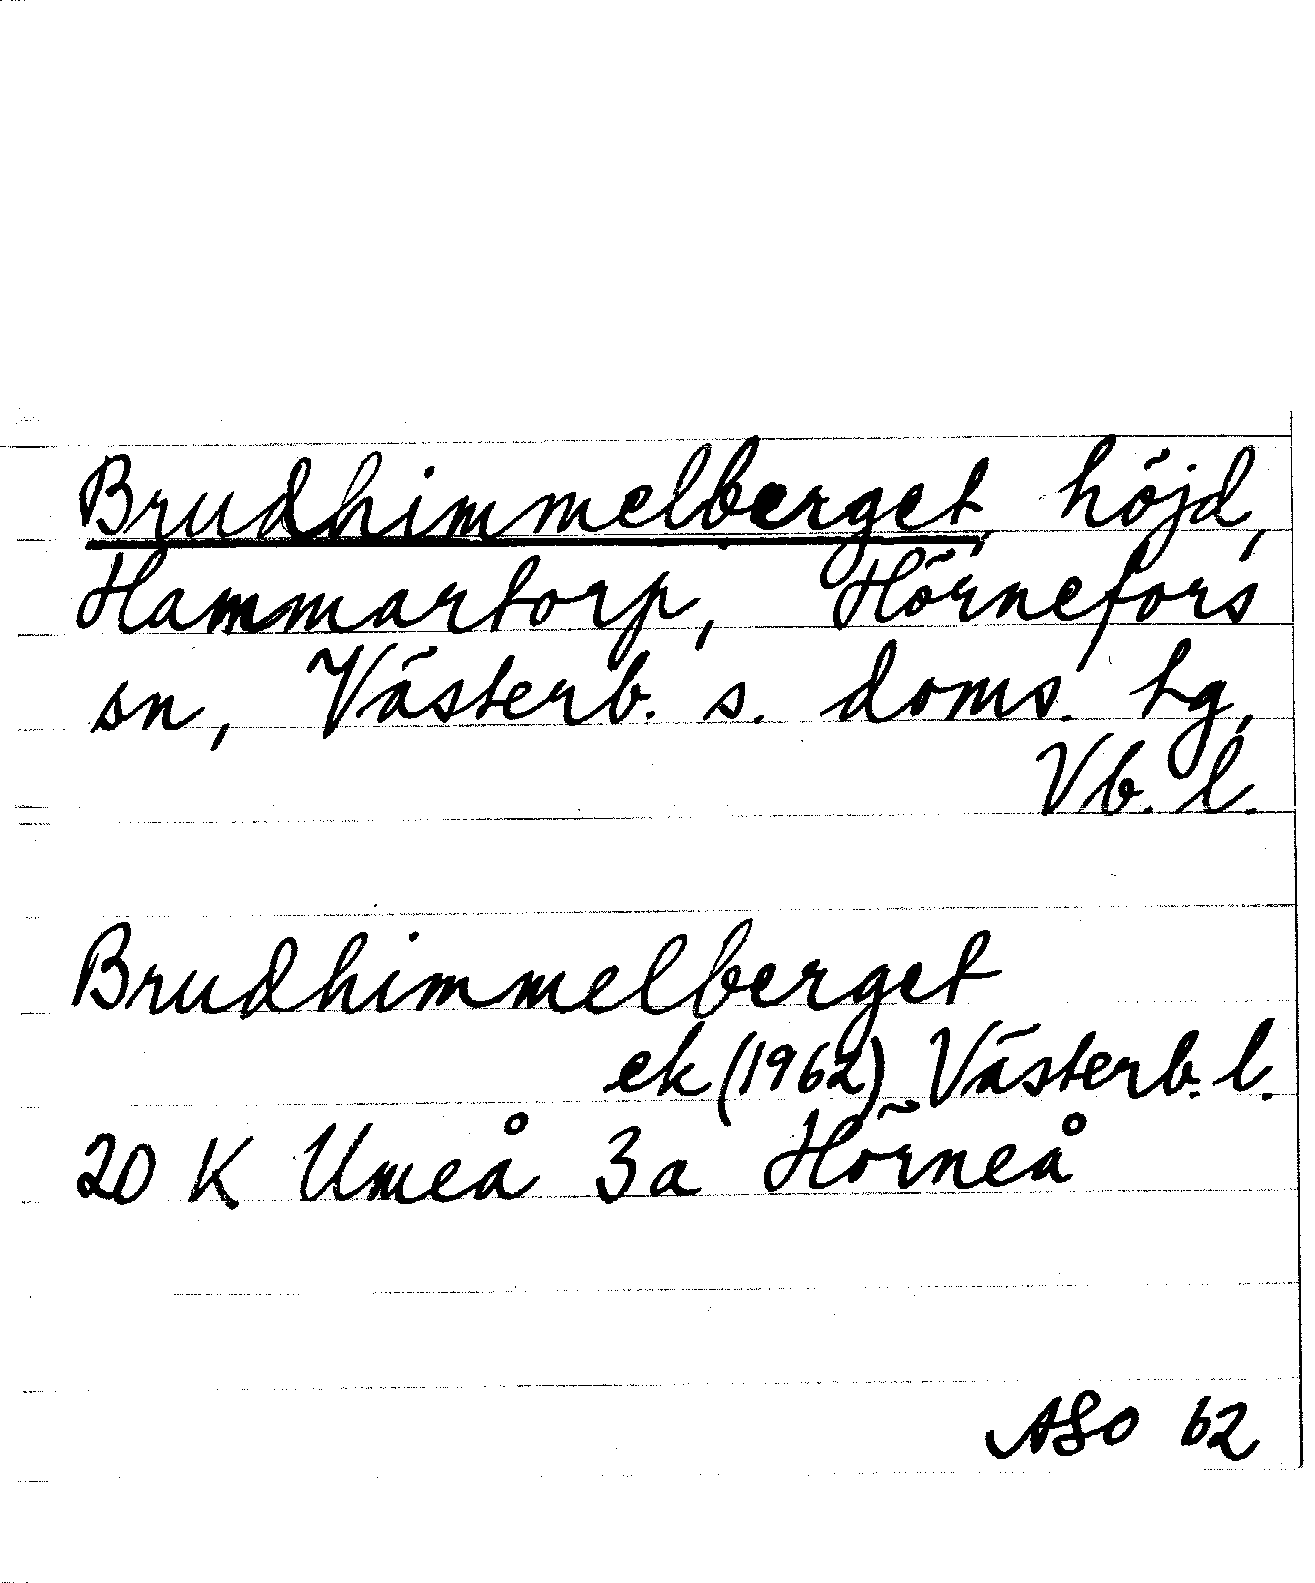 Brudhimmelberget, höjd,
Hammartorp, Hörnefors
sn, Västerb. s. doms. tg,
Vb. l.
Brudhimmelberget
ek (1962) Västerb. l.
20 K Umeå 3a Hörneå
ASO 62